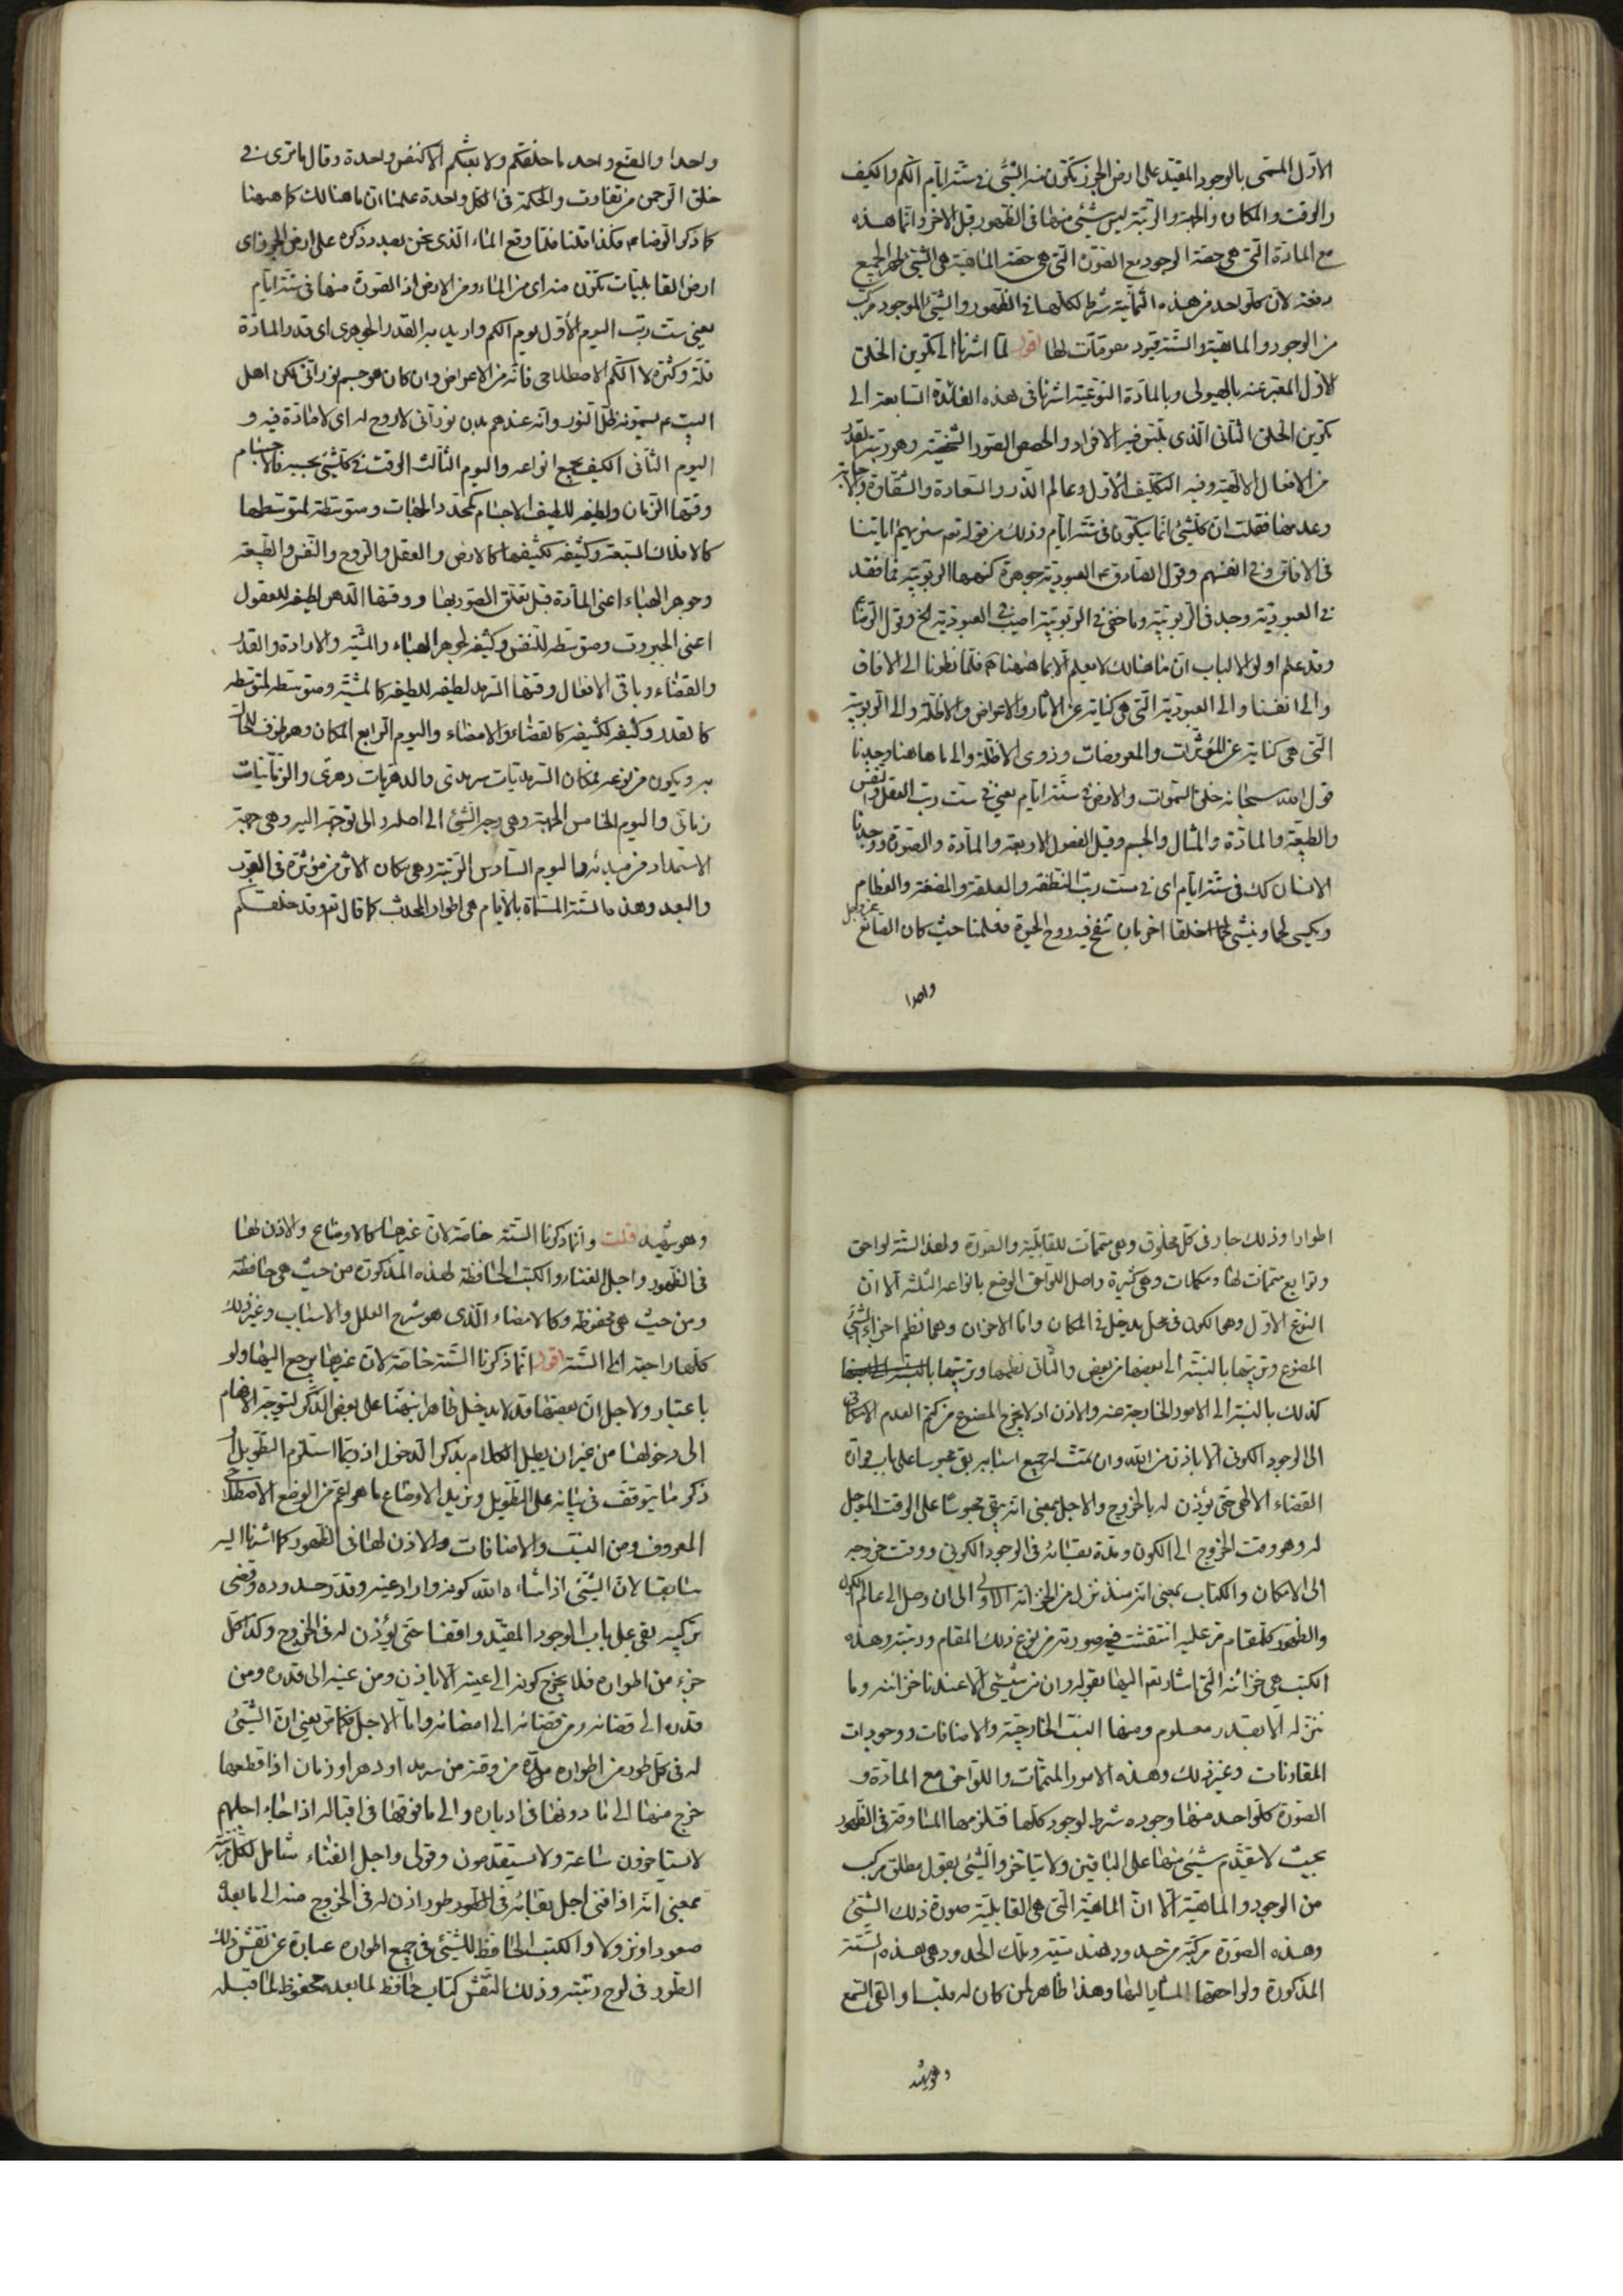 الاوّل المسمّى بالوجود المقيّد على ارض الجرز تكوّن منه الشئ فى ستّة ايّام الكم والكيف
والوقت والمكان والجهة والرتبة ليس شيئى منها فى الظهور قبل الاخر وانّما هذه
مع المادّة التى هى حصّة الوجود مع الصّورة التى هى حصّة الماهيّة هى الشئ تظهر الجميع
دفعة لانّ كلّ واحد من هذه الثمانية شرط لكلّها فى الظهور والشئ الموجود مركب
من الوجود والماهيّة والستّة قيود مقوّمات لها اقول لمّا اشرنا الى تكوين الخلق
الاوّل المعبّر عنه بالهيولى وبالمادّة النّوعيّة اشرنا فى هذه الفائدة السّابعة الى
تكوين الخلق الثانى الّذى تلبس فيه الافراد والحصص الصّور الشّخصيّة وهو رتبة القدر
من الافعال الالهيّة وفيه التكليف الاوّل وعالم الذّر والسّعادة والشّقاوة والاجابة
وعدمها فقلت انّ كلّ شئ انّما يتكوّن فى ستّة ايّام وذلك من قوله تعم سنريهم اياتنا
فى الافاق وفى انفسهم وقول الصّادق ع العبوديّة جوهرة كنهها الربوبيّة فما فقد
فى العبوديّة وجد فى الرّبوبيّة وما خفى فى الربوبيّة اصيب فى العبوديّة الخ وقول الرّضا ع
وقد علم اولو الالباب انّ ما هنالك لا يعلم الّا بما ههنا فلمّا نظرنا الى الافاق
والى انفسنا والى العبوديّة التى هى كناية عن الاثار والاعراض والاظلّة والى الرّبوبيّة
التى هى كناية عن المؤثّرات والمعروضات وذوى الاظلّة والى ما هاهنا وجدنا
قول الله سبحانه خلق السّموات والارض فى ستّة ايّام يعنى فى ست رتب العقل والنفس
والطبيعة والمادّة والمثال والجسم وقيل الفصول الاربعة والمادّة والصّورة ووجدنا
الانسان كك فى ستّة ايّام اى فى ست رتب النطفة والعلقة والمضغة والعظام
ويكسى لحما وينشئ خلقا اخر بان تنفخ فيه روح الحيوة فعلمنا حيث كان الصّانع عزّ وجل
واحدا
واحدا والصّنع واحد ما خلقكم ولا بعثكم الّا كنفس واحدة وقال ما ترى فى
خلق الرّحمن من تفاوت والحكمة فى الكلّ واحدة علمنا انّ ما هنالك كما ههنا
كما ذكر الرّضا ع فكذا قلنا فلمّا وقع الماء الّذى نحن بصدد ذكره على ارض الجرز اى
ارض القابليّات تكوّن منه اى من الماء ومن الارض اذ الصّورة منها فى ستّة ايّام
يعنى ست رتب اليوم الاوّل يوم الكم واريد به القدر الجوهرى اى قدر المادّة
قلّة وكثرة لا الكم الاصطلاحى فانّه من الاعراض وان كان هو جسم نورانى لكن اهل
البيت ع يسمّونه ظلّ النّور وانّه عندهم بدن نورانى لا روح له اى لا مادّة فيه و
اليوم الثّانى الكيف بجميع انواعه واليوم الثّالث الوقت فى كلّ شئ بحسبه فالاجسام
وقتها الزّمان ولطيفه للطيف الاجسام كمحدّد الجهات ومتوسّطه لمتوسّطها
كالافلاك السّبعة وكثيفه لكثيفها كالارض والعقل والرّوح والنّفس والطّبيعة
وجوهر الهباء اعنى المادّة قبل تعلّق الصّور بها ووقتها الدّهر لطيفه للعقول
اعنى الجبروت ومتوسّطه للنّفس وكثيفه لجوهر الهباء والمشيّة والارادة والقدر
والقضاء وباقى الافعال وقتها السّرمد لطيفه للطيفه كالمشيّة ومتوسّطه لمتوسّطه
كالقدر وكثيفه لكثيفه كالقضاء والامضاء واليوم الرّابع المكان وهو ظرف للحالّ
به ويكون من نوعه فمكان السّرمديّات سرمدى والدهريّات دهرى والزّمانيّات
زمانى واليوم الخامس الجهة وهى وجه الشّئ الى اصله والى توجّه اليه وهى جهة
الاستمداد من مبدئه واليوم السّادس الرّتبة وهى مكان الاثر من مؤثّره فى القرب
والبعد وهذه الستّة المسمّاة بالايّام هى اطوار الحادث كما قال تعم وقد خلقكم
اطوارا وذلك جار فى كلّ مخلوق وهى متممات للقابليّة والصّورة ولهذه الستّة لواحق
وتوابع متممات لها ومكملات وهى كثيرة واصل اللّواحق الوضع بانواعه الثلثة الّا انّ
النوع الاوّل وهو الكون فى محل يدخل فى المكان وامّا الاخران وهما نظم اجزاء الشّئ
المصنوع وترتيبها بالنّسبة الى بعضها من بعض والثّانى نظمها وترتيبها
كذلك بالنّسبة الى الامور الخارجة عنه والاذن اذ لا يخرج المصنوع من كتم العدم الامكانى
الى الوجود الكونى الّا باذن من الله وان تمّت له جميع اسبابه يبقى محبوسا على باب فوّارة
القضاء الالهى حتّى يؤذن له بالخروج والاجل بمعنى انّه يبقى محبوسا على الوقت المؤجل
له وهو وقت الخروج الى الكون ومدّة بقائه فى الوجود الكونى ووقت خروجه
الى الامكان والكتاب بمعنى انّه منذ نزل من الخزانة الاولى الى ان وصل الى عالم الكون
والظهور كلّ مقام مرّ عليه انتقشت فيه صورته من نوع ذلك المقام ورتبته وهذه
الكتب هى خزائنه التى اشار تعم اليها بقوله وان من شيئى الّا عندنا خزائنه وما
ننزّله الّا بقدر معلوم ومنها النسب الخارجيّة والاضافات ووجودات
المقارنات وغير ذلك وهذه الامور المتمّمات واللّواحق مع المادّة و
الصّورة كلّ واحد منها وجوده شرط لوجود كلّها فتلزمها المساوقة فى الظّهور
بحيث لا يتقدّم شيئى منها على الباقين ولا يتأخّر والشّيئى بقول مطلق مركب
من الوجود والماهيّة الّا انّ الماهيّة التى هى القابليّة صورة ذلك الشّيئى
وهذه الصّورة مركبة من حدود هندسيّة وتلك الحدود هى هذه الستّة
المذكورة ولواحقها المشار اليها وهذا ظاهر لمن كان له قلب او القى السّمع
وهو شهيد
وهو شهيد قلت وانّما ذكرنا السّتّة خاصّة لانّ غيرها كالاوضاع والاذن لها
فى الظّهور واجل الفناء والكتب الحافظة لهذه المذكورة من حيث هى حافظة
ومن حيث هى محفوظة وكالامضاء الّذى هو شرح العلل والاسباب وغير ذلك
كلّها راجعة الى السّتّة اقول انّما ذكرنا السّتّة خاصّة لانّ غيرها يرجع اليها ولو
باعتبار ولاجل انّ بعضها قد لا يدخل ظاهرا نبّهنا على بعض الذّكر لتتوجّه الافهام
الى دخولها من غير ان يطيل الكلام بذكر الدّخول اذ ربّما استلزم التّطويل او
ذكر ما يتوقف فى بيانه على التّطويل ونريد بالاوضاع ما هو اعمّ من الوضع الاصطلاحى
المعروف ومن النسب والاضافات والاذن لها فى الظهور كما اشرنا اليه
سابقا لانّ الشّئ اذا شاء الله كونه واراد عينه وقدّر حدوده وقضى
تركيبه بقى على باب الوجود المقيّد واقفا حتّى يؤذن له فى الخروج وكذا كلّ
جزء من اطواره فلا يخرج كونه الى عينه الّا باذن ومن عينه الى قدره ومن
قدره الى قضائه ومن قضائه الى امضائه وامّا الاجل فكما مرّ يعنى انّ الشّيئى
له فى كلّ طور من اطواره مدّة من وقته من سرمد او دهر او زمان اذا قطعها
خرج منها الى ما دونها فى ادباره والى ما فوقها فى اقباله اذا جاء اجلهم
لا يستاخرون ساعة ولا يستقدمون وقولى واجل الفناء شامل لكلّ رتبة
بمعنى انّه اذا فنى اجل بقائه فى الطّور طور اذن له فى الخروج منه الى ما بعده
صعودا ونزولا والكتب الحافظ للشّيئى فى جميع اطواره عبارة عن نقش ذلك
الطّور فى لوح رتبته وذلك النّقش كتاب حافظ لما بعده محفوظ لما قبله